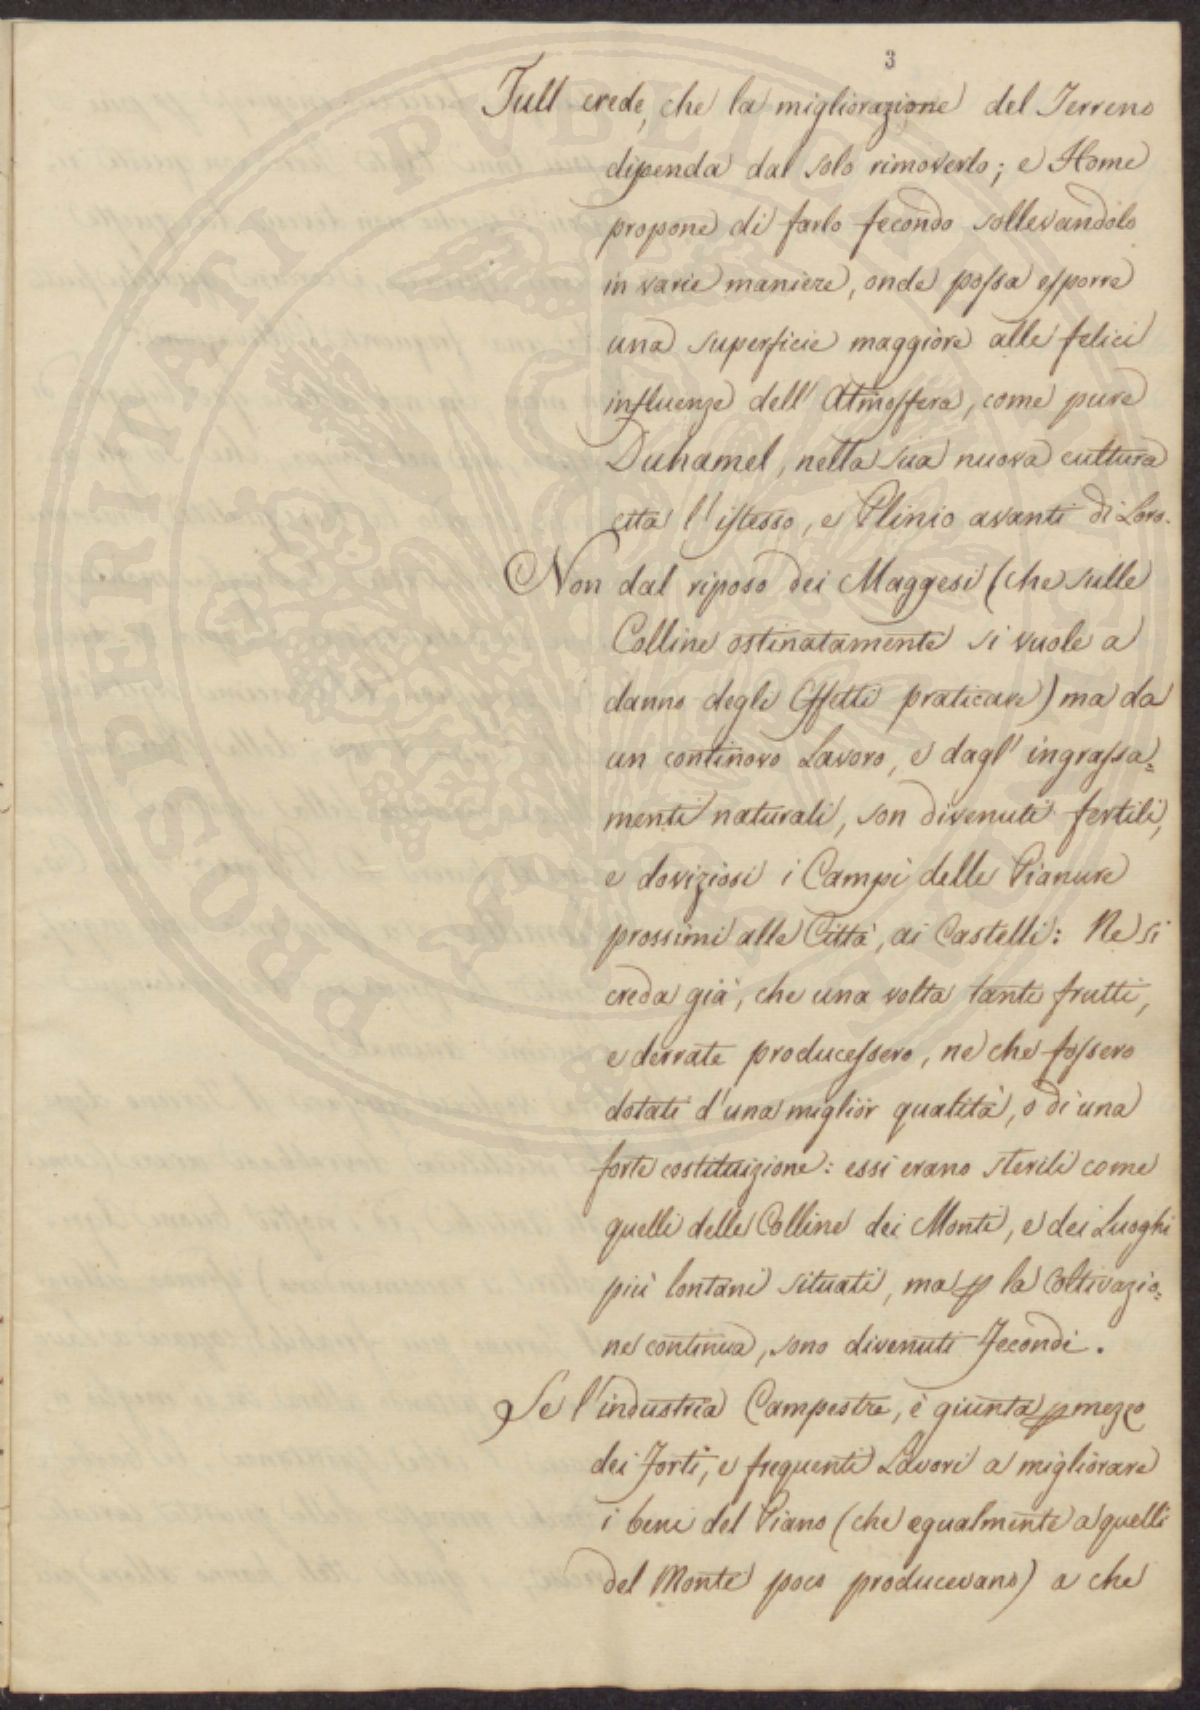 3
Tull crede, che la migliorazione del Terreno
dipenda dal solo rimoverlo; e Home
propone di farlo fecondo sollevandolo
in varie maniere, onde possa esporre
una superficie maggiore alle felici
influenze dell' Atmosfera, come pure
Duhamel, nella sua nuova cultura
cita l'istesso, e Plinio avanti di Loro.
Non dal riposo dei Maggesi (che sulle
Colline ostinatamente si vuole a
danno degli Effetti praticare) ma da
un continovo Lavoro, e dagl' ingrassa=
menti naturali, son divenuti fertili,
e doviziosi i Campi delle Pianure
prossimi alle Città, ai Castelli: Ne si
creda già, che una volta tanti frutti,
e derrate producessero, ne che fossero
dotati d'una miglior qualità, o di una
forte costituizione: essi erano sterili come
quelli delle Colline dei Monti, e dei Luoghi
più lontani situati, ma p la Coltivazio=
ne continua, sono divenuti Fecondi.
Se l'industria Campestre, è giunta p mezzo
dei Forti, e frequenti Lavori a migliorare
i beni del Piano (che egualmente a quelli
del Monte poco producevano) a che
PROSPERITATI PVBLICAE